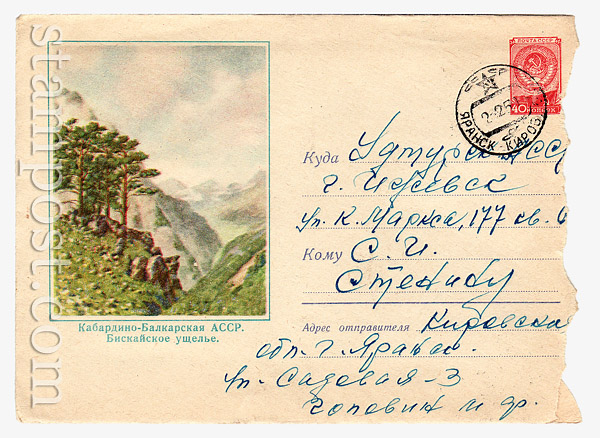 stamp-post.com
ПОЧТА СССР
40 КОПЕЕК
СССР
ЯРАНСК-КИРОВ
Куда Удмурт. АССР
г. Ижевск
ул. К. Маркса, 177 кв. 6
Кому С. И.
Стенину
Кабардино-Балкарская АССР.
Бискайское ущелье.
Адрес отправителя Кировская
обл. г. Яранск.
ул. Садовая-3